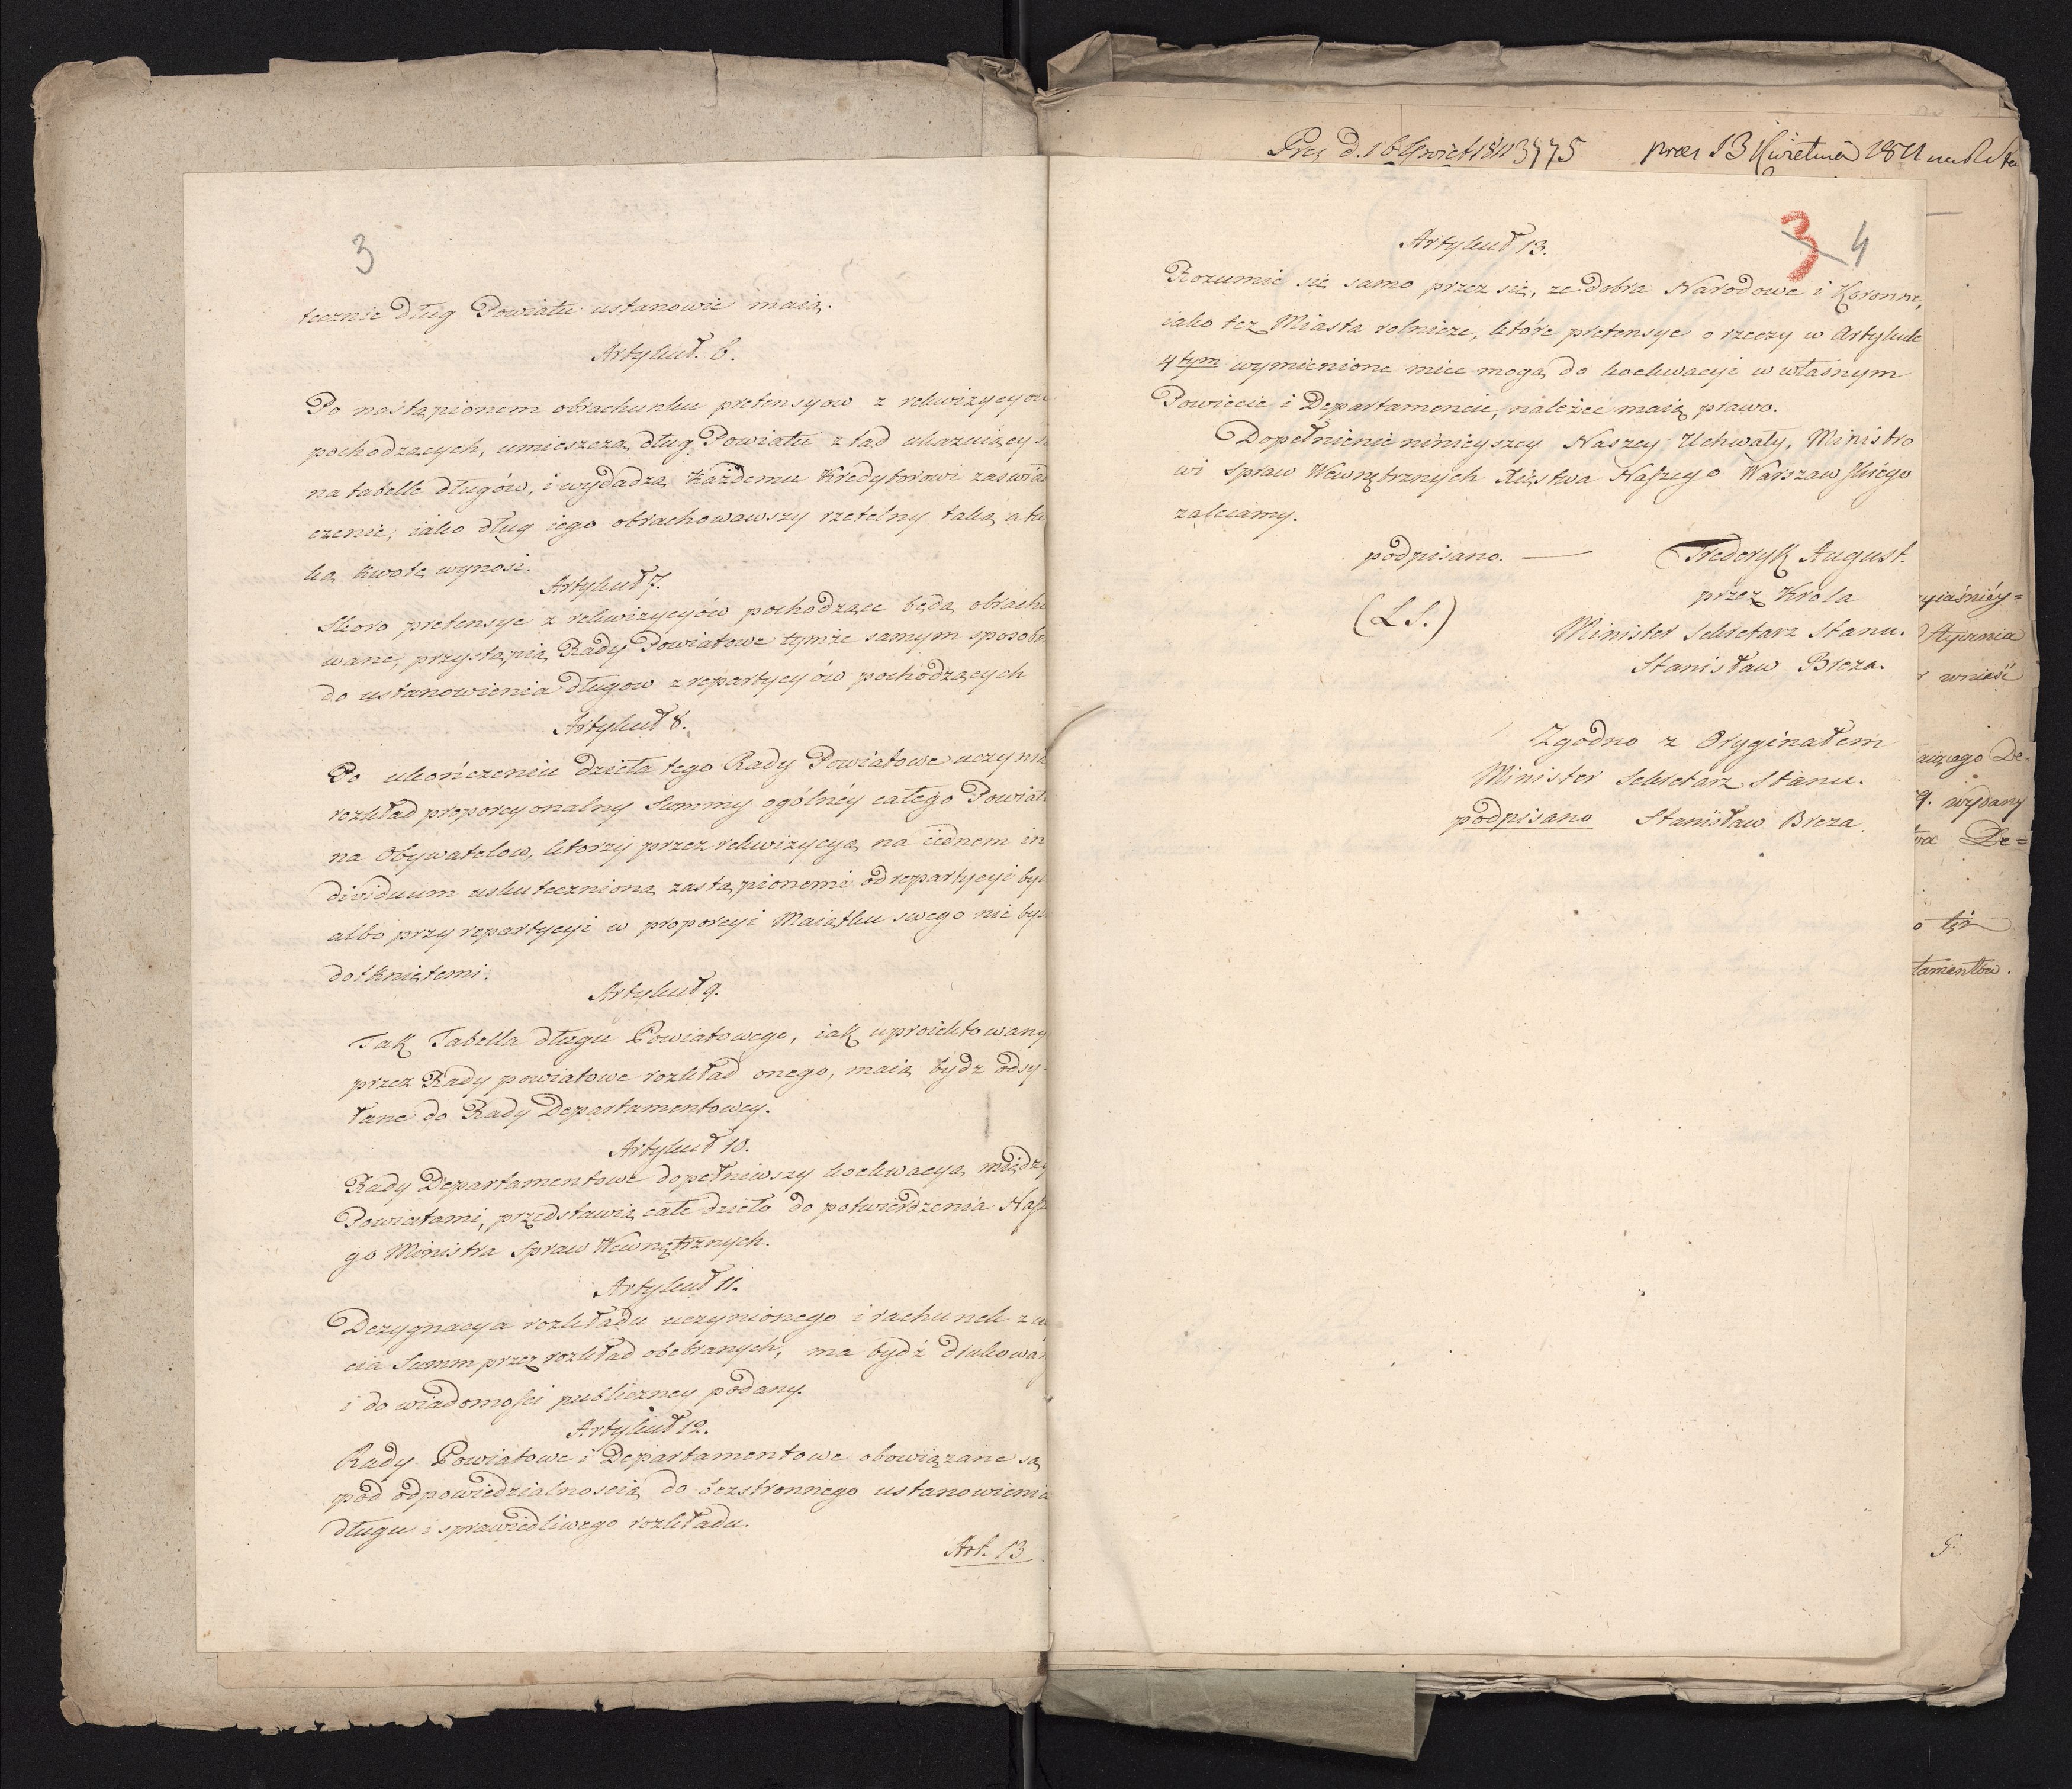 3
tecznie dług Powiatu ustanowić maią.
Artykuł. 6.
Po nastąpionem obrachunku pretensyow z rekwizycyow
pochodzących, umieszczą dług Powiatu z tąd ukazuiący
na tabelle długów, i wydadzą Każdemu Kredytorowi zaswiad
czenie, iako dług iego obrachowawszy rzetelny taką a ta
ką kwotę wynosi.
Artykuł 7.
Skoro pretensye z rekwizycyów pochodzące będą obracho
wane, przystąpią Rady Powiatowe tymże samym sposobe
do ustanowienia długow z repartycyów pochodzących
Artykuł 8.
Po ukończeniu dzieła tego Rady Powiatowe uczynią
rozkład proporcyonalny Summy ogólnéy całego Powiatu
na Obywatelow, ktorzy przez rekwizycyą na iednem in
dividuum uskutecznioną zastąpionemi od repartycyi by
albo przy repartycyi w proporcyi Maiątku swego nie by
dotkniętemi.
Artykuł 9.
Tak Tabella długu Powiatowego, iak uproiektowany
przez Rady powiatowe rozkład onego, maią bydz odsy-
łane do Rady Departamentowey.
Artykuł 10.
Rady Departamentowe dopełniwszy koekwacyą między
Powiatami, przedstawią całe dzieło do potwierdzenia Nasz
go Ministra Spraw Wewnętrznych.
Artykuł 11.
Dezygnacya rozkładu uczynionego i rachunek z
cia Summ przez rozkład obebranych, ma bydź drukowan
i do wiadomości publiczney podany.
Artykuł 12.
Rady Powiatowe i Departamentowe obowiązane są
pod odpowiedzialnoscią do bezstronnego ustanowienia
długu i sprawiedliwego rozkładu.
Art. 13
Prez d. 16 Kwiet 1811 3775 prez 13 Kwietnia 1811
3 4
Artykuł 13.
Rozumie się samo przez się, ze dobra Narodowe i Koronne,
iako tez Miasta rolnicze, które pretensye o rzeczy w Artykule
4tym wymienione miec mogą, do koekwacyi w własnym
Powiecie i Departamencie, należeć maią prawo.
Dopełnienie ninieyszey Naszey Uchwały, Ministro
wi Spraw Wewnętrznych Xięstwa Naszego Warszawskiego
zalecamy.
podpisano. — Frederyk August.
przez Krola
(L.S.) Minister Sekretarz Stanu.
Stanisław Breza.
Zgodno z Oryginałem
Minister Sekretarz Stanu.
podpisano Stanisław Breza.
yiaśniéy=
Stycznia
wnieść
aiącego De=
9. wydany
De=
o téż
tamentów.